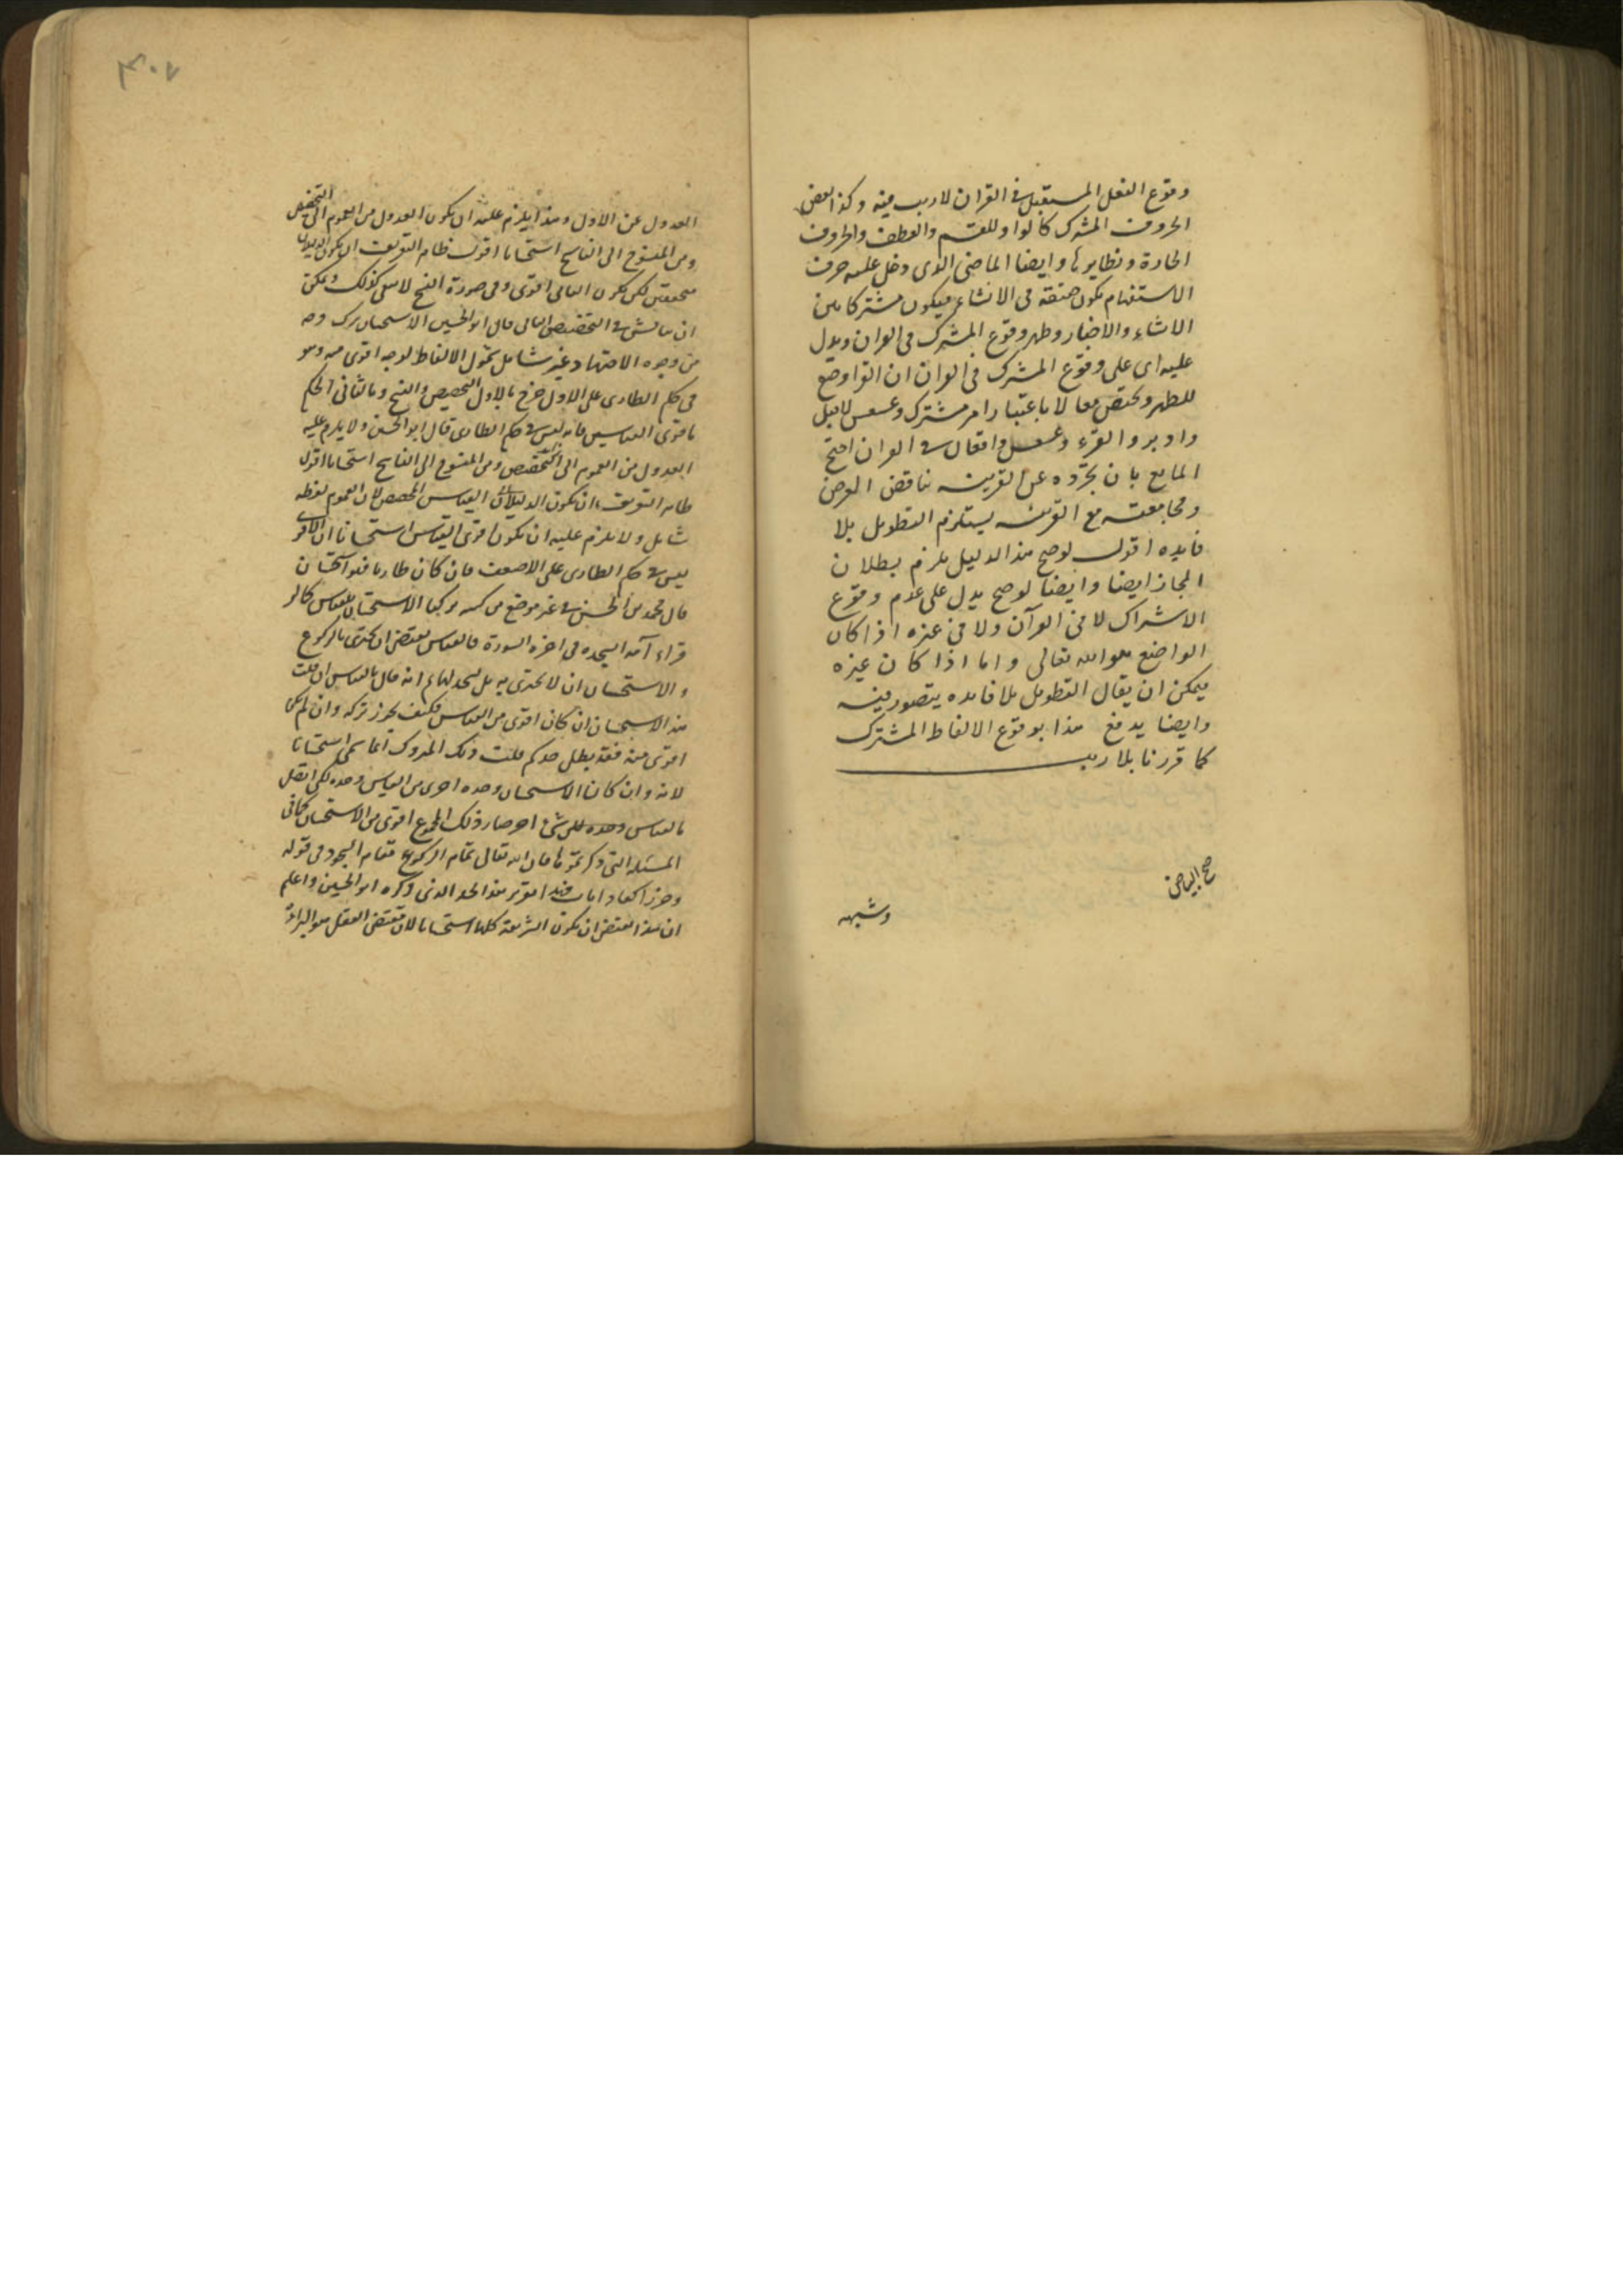 وقوع الفعل المستقبل في القرآن لا ريب فيه وكذا بعض
الحروف المشترك كالواو للقسم والعطف والحروف
الجارة ونظايرها وايضا الماضى الذى دخل عليه حرف
الاستفهام يكون حقيقة فى الانشاء فيكون مشتركا بين
الانشاء والاخبار وظهر وقوع المشترك فى القران ويدل
عليه اى على وقوع المشترك فى القران ان القرا وضع
للطهر والحيض معا لا باعتبار امر مشترك وعسعس لاقبل
وادبر والقرء وعسعس واقعان فى القران احتج
المانع بان تجرده عن القرينه يناقض الغرض
ومجامعته مع القرينه يستلزم التطويل بلا
فايده اقول لو صح هذا الدليل يلزم بطلان
المجاز ايضا وايضا لو صح يدل على عدم وقوع
الاشتراك لا فى القرآن ولا فى غيره اذا كان
الواضع هو الله تعالى واما اذا كان غيره
يمكن ان يقال التطويل بلا فايده يتصور فيه
وايضا يدفع هذا بوقوع الالفاظ المشترك
كما قررنا بلا ريب
صح البياض
وشبهه
٤٠٧
العدول عن الاول وهذا يلزم عليه ان يكون العدول من العموم الى التخصيص
ومن المنسوخ الى الناسخ استحسانا اقول ظاهر التعريف ان يكون الدليلان
متحققين لكن يكون الثانى اقوى وفى صورة النسخ لا يبقى كذلك ويمكن
ان يناقش فى التخصيص الثانى قال ابو الحسين الاستحسان ترك وجه
من وجوه الاجتهاد غير شامل شمول الالفاظ لوجه اقوى منه وهو
فى حكم الطارى على الاول خرج بالاول التخصيص والنسخ وبالثانى الحكم
باقوى القياسين فانه ليس فى حكم الطارى قال ابو الحسين ولا يلزم عليه
العدول من العموم الى التخصيص ومن المنسوخ الى الناسخ استحسانا اقول
ظاهر التعريف ان يكون الدليلان القياس المخصص لان العموم لفظه
شامل ولا يلزم عليه ان يكون اقوى القياس استحسانا لان الاقوى
ليس فى حكم الطارى على الاضعف فان كان طاريا فهو استحسان
قال محمد بن الحسن فى غير موضع من كتبه تركنا الاستحسان للقياس كما لو
قراء آية السجده فى اخره السورة فالقياس يقتضى ان يجتزى بالركوع
والاستحسان ان لا يجتزى به بل يسجد لها ثم انه قال بالقياس ان قلت
هذا الاستحسان ان كان اقوى من القياس فكيف يجوز تركه وان لم يكن
اقوى منه فقد بطل حدكم قلت ذلك المتروك انما سمى استحسانا
لانه وان كان الاستحسان وحده اقوى من القياس وحده لكن اتصل
بالقياس وحده شئ اخر صار ذلك المجموع اقوى من الاستحسان كما فى
المسئلة التى ذكرتموها فان الله تعالى اقام الركوع مقام السجود فى قوله
وخر راكعا واناب هذا تقرير هذا الحد الذى ذكره ابو الحسين واعلم
ان هذا يقتضى ان يكون الشريعة كلها استحسانا لان مقتضى العقل هو البراءة